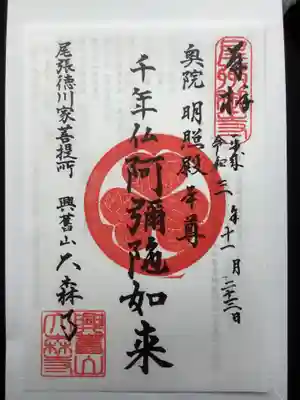 奉拝
令和三年十一月二十三日
奥院 明照殿本尊
千年仏 阿彌陀如来
尾張徳川家菩提所 興舊山 大森寺
興舊山
大森寺